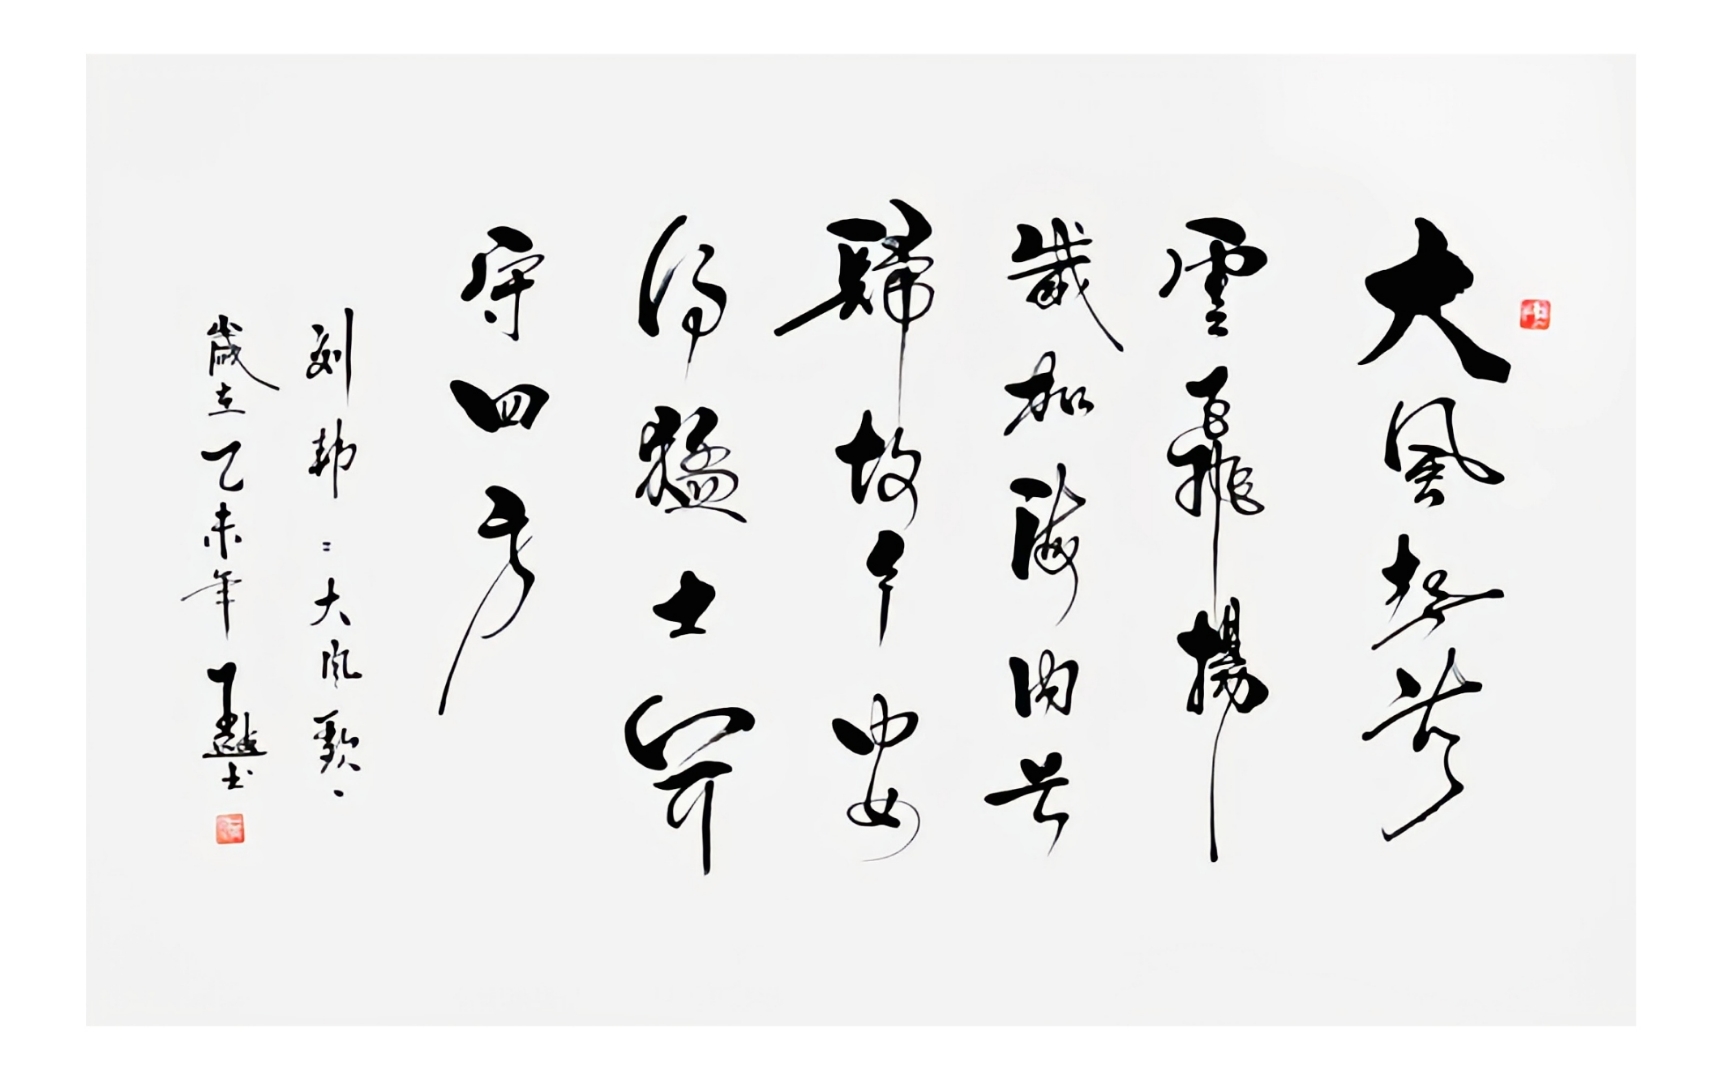 大風起兮
雲飛揚
威加海内兮
歸故乡安
得猛士兮
守四方
刘邦：大风歌
歲在乙未年 书